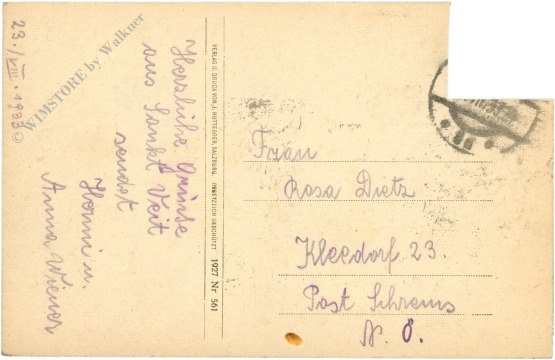 29./VIII. 1933
Herzliche Grüsse
aus Sankt Veit
sendet
u.
Anna Wiener
VERLAG U. DRUCK VON J. HUTTEGGER, SALZBURG. GESETZLICH GESCHÜTZT 1927 Nr 561
Frau
Rosa Dietz
Kleedorf 23.
Post Schrems
N. Ö.
© WIMSTORE by Walkner